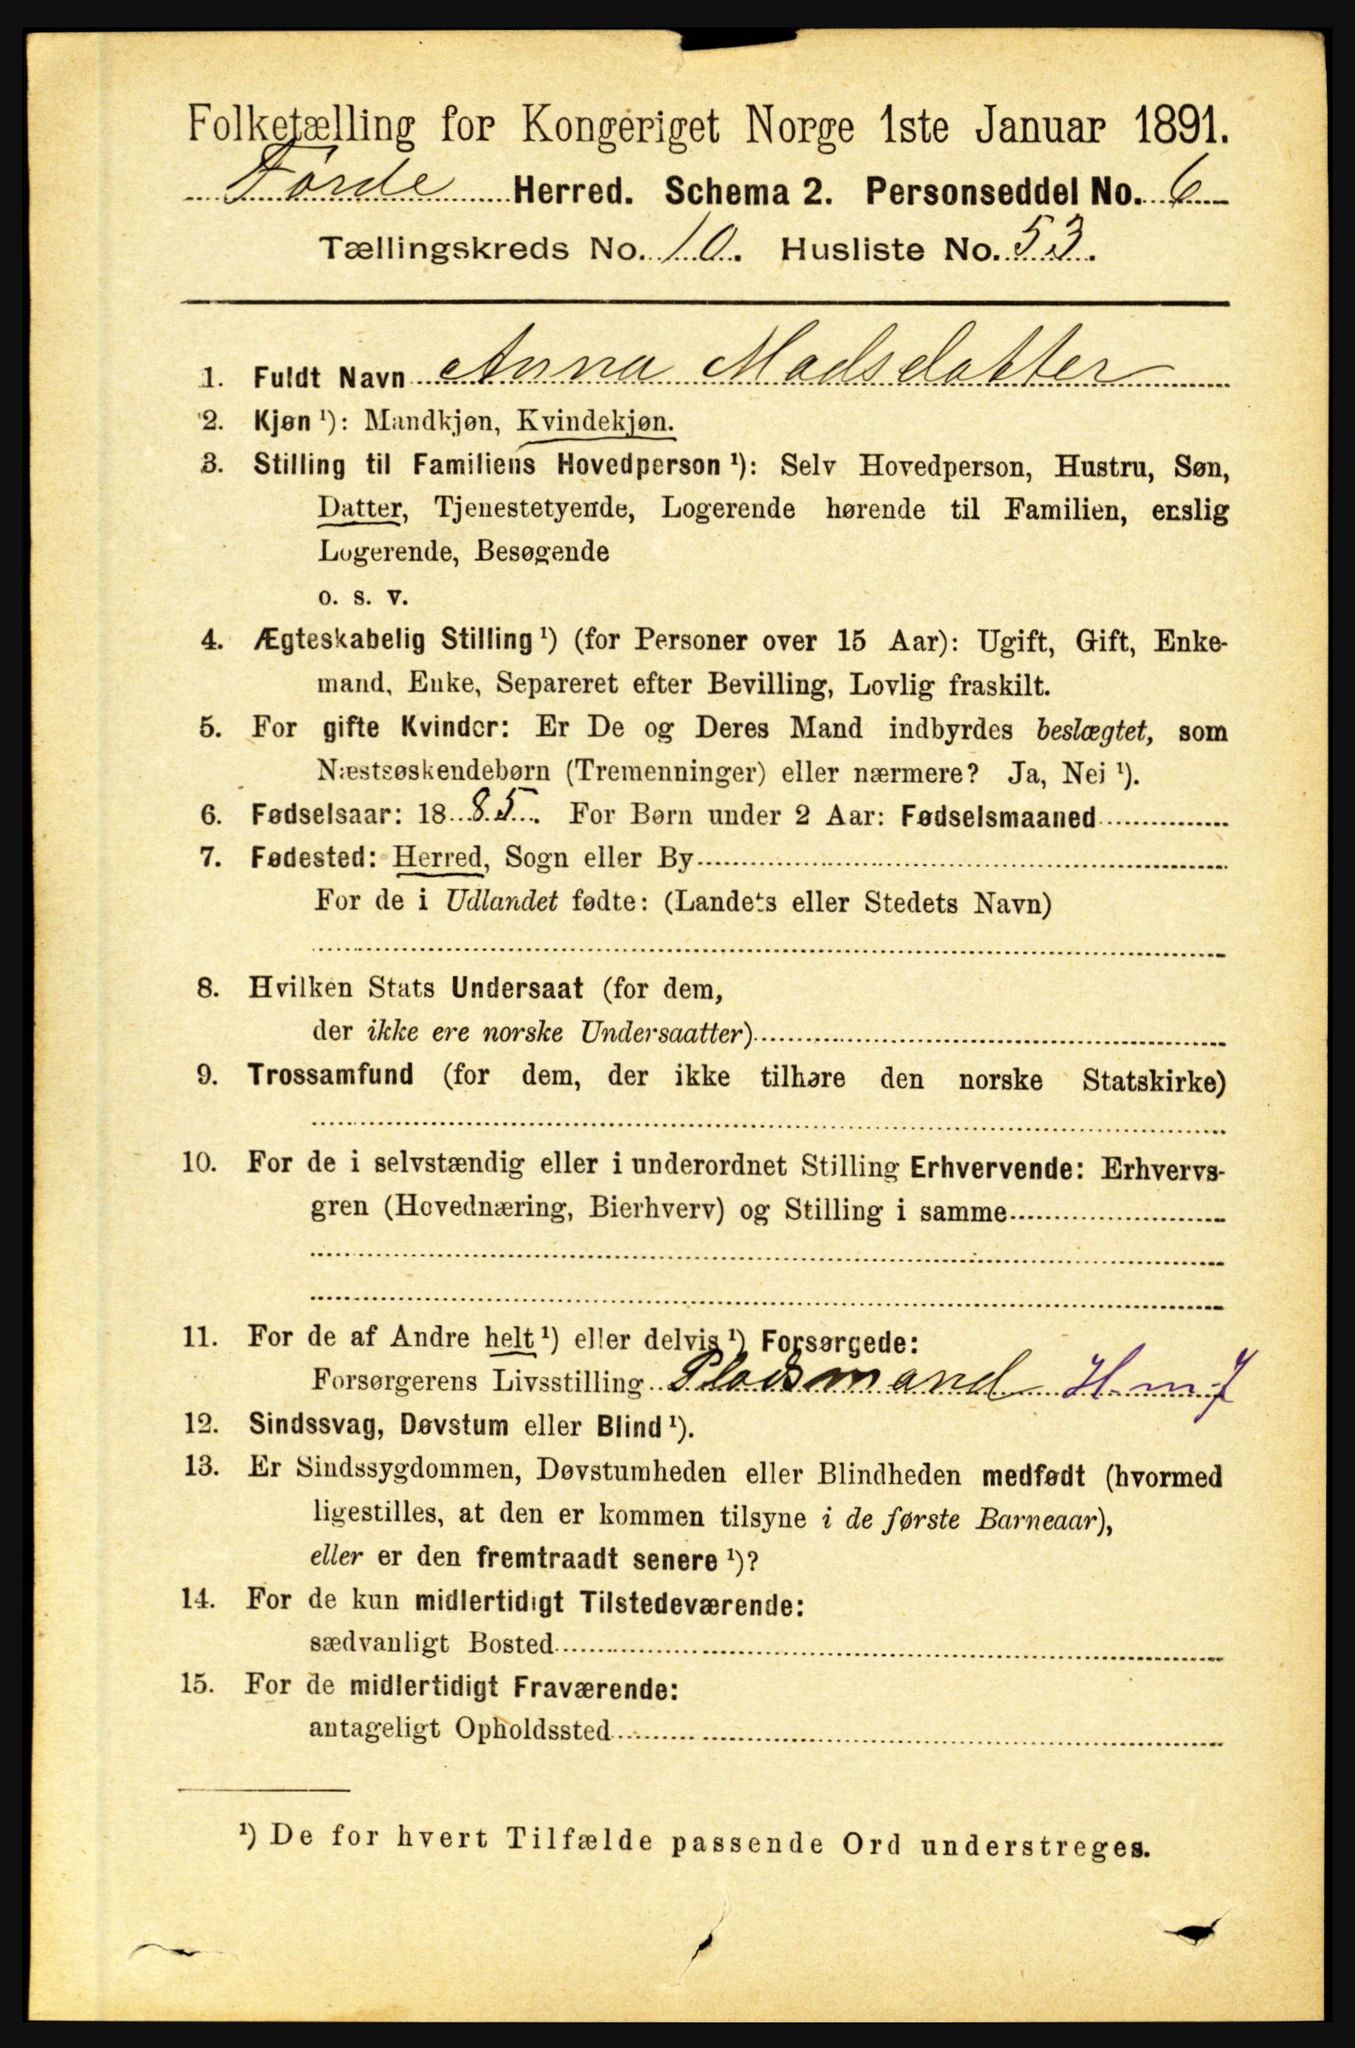 Folketælling for Kongeriget Norge 1ste Januar 1891.
Førde Herred. Schema 2. Personseddel No. 6
Tællingskreds No. 10. Husliste No. 53.
1. Fuldt Navn Anna Madsdatter
2. Kjøn ¹): Mandkjøn, Kvindekjøn.
3. Stilling til Familiens Hovedperson ¹): Selv Hovedperson, Hustru, Søn,
Datter, Tjenestetyende, Logerende hørende til Familien, enslig
Logerende, Besøgende
o. s. v.
4. Ægteskabelig Stilling ¹) (for Personer over 15 Aar): Ugift, Gift, Enke-
mand, Enke, Separeret efter Bevilling, Lovlig fraskilt.
5. For gifte Kvinder: Er De og Deres Mand indbyrdes beslægtet, som
Næstsøskendebørn (Tremenninger) eller nærmere? Ja, Nei ¹).
6. Fødselsaar: 1885. For Børn under 2 Aar: Fødselsmaaned
7. Fødested: Herred, Sogn eller By
For de i Udlandet fødte: (Landets eller Stedets Navn)
8. Hvilken Stats Undersaat (for dem,
der ikke ere norske Undersaatter)
9. Trossamfund (for dem, der ikke tilhøre den norske Statskirke)
10. For de i selvstændig eller i underordnet Stilling Erhvervende: Erhvervs-
gren (Hovednæring, Bierhverv) og Stilling i samme
11. For de af Andre helt ¹) eller delvis ¹) Forsørgede:
Forsørgerens Livsstilling Pladsmand H m J
12. Sindssvag, Døvstum eller Blind ¹).
13. Er Sindssygdommen, Døvstumheden eller Blindheden medfødt (hvormed
ligestilles, at den er kommen tilsyne i de første Barneaar),
eller er den fremtraadt senere ¹)?
14. For de kun midlertidigt Tilstedeværende:
sædvanligt Bosted
15. For de midlertidigt Fraværende:
antageligt Opholdssted
¹) De for hvert Tilfælde passende Ord understreges.